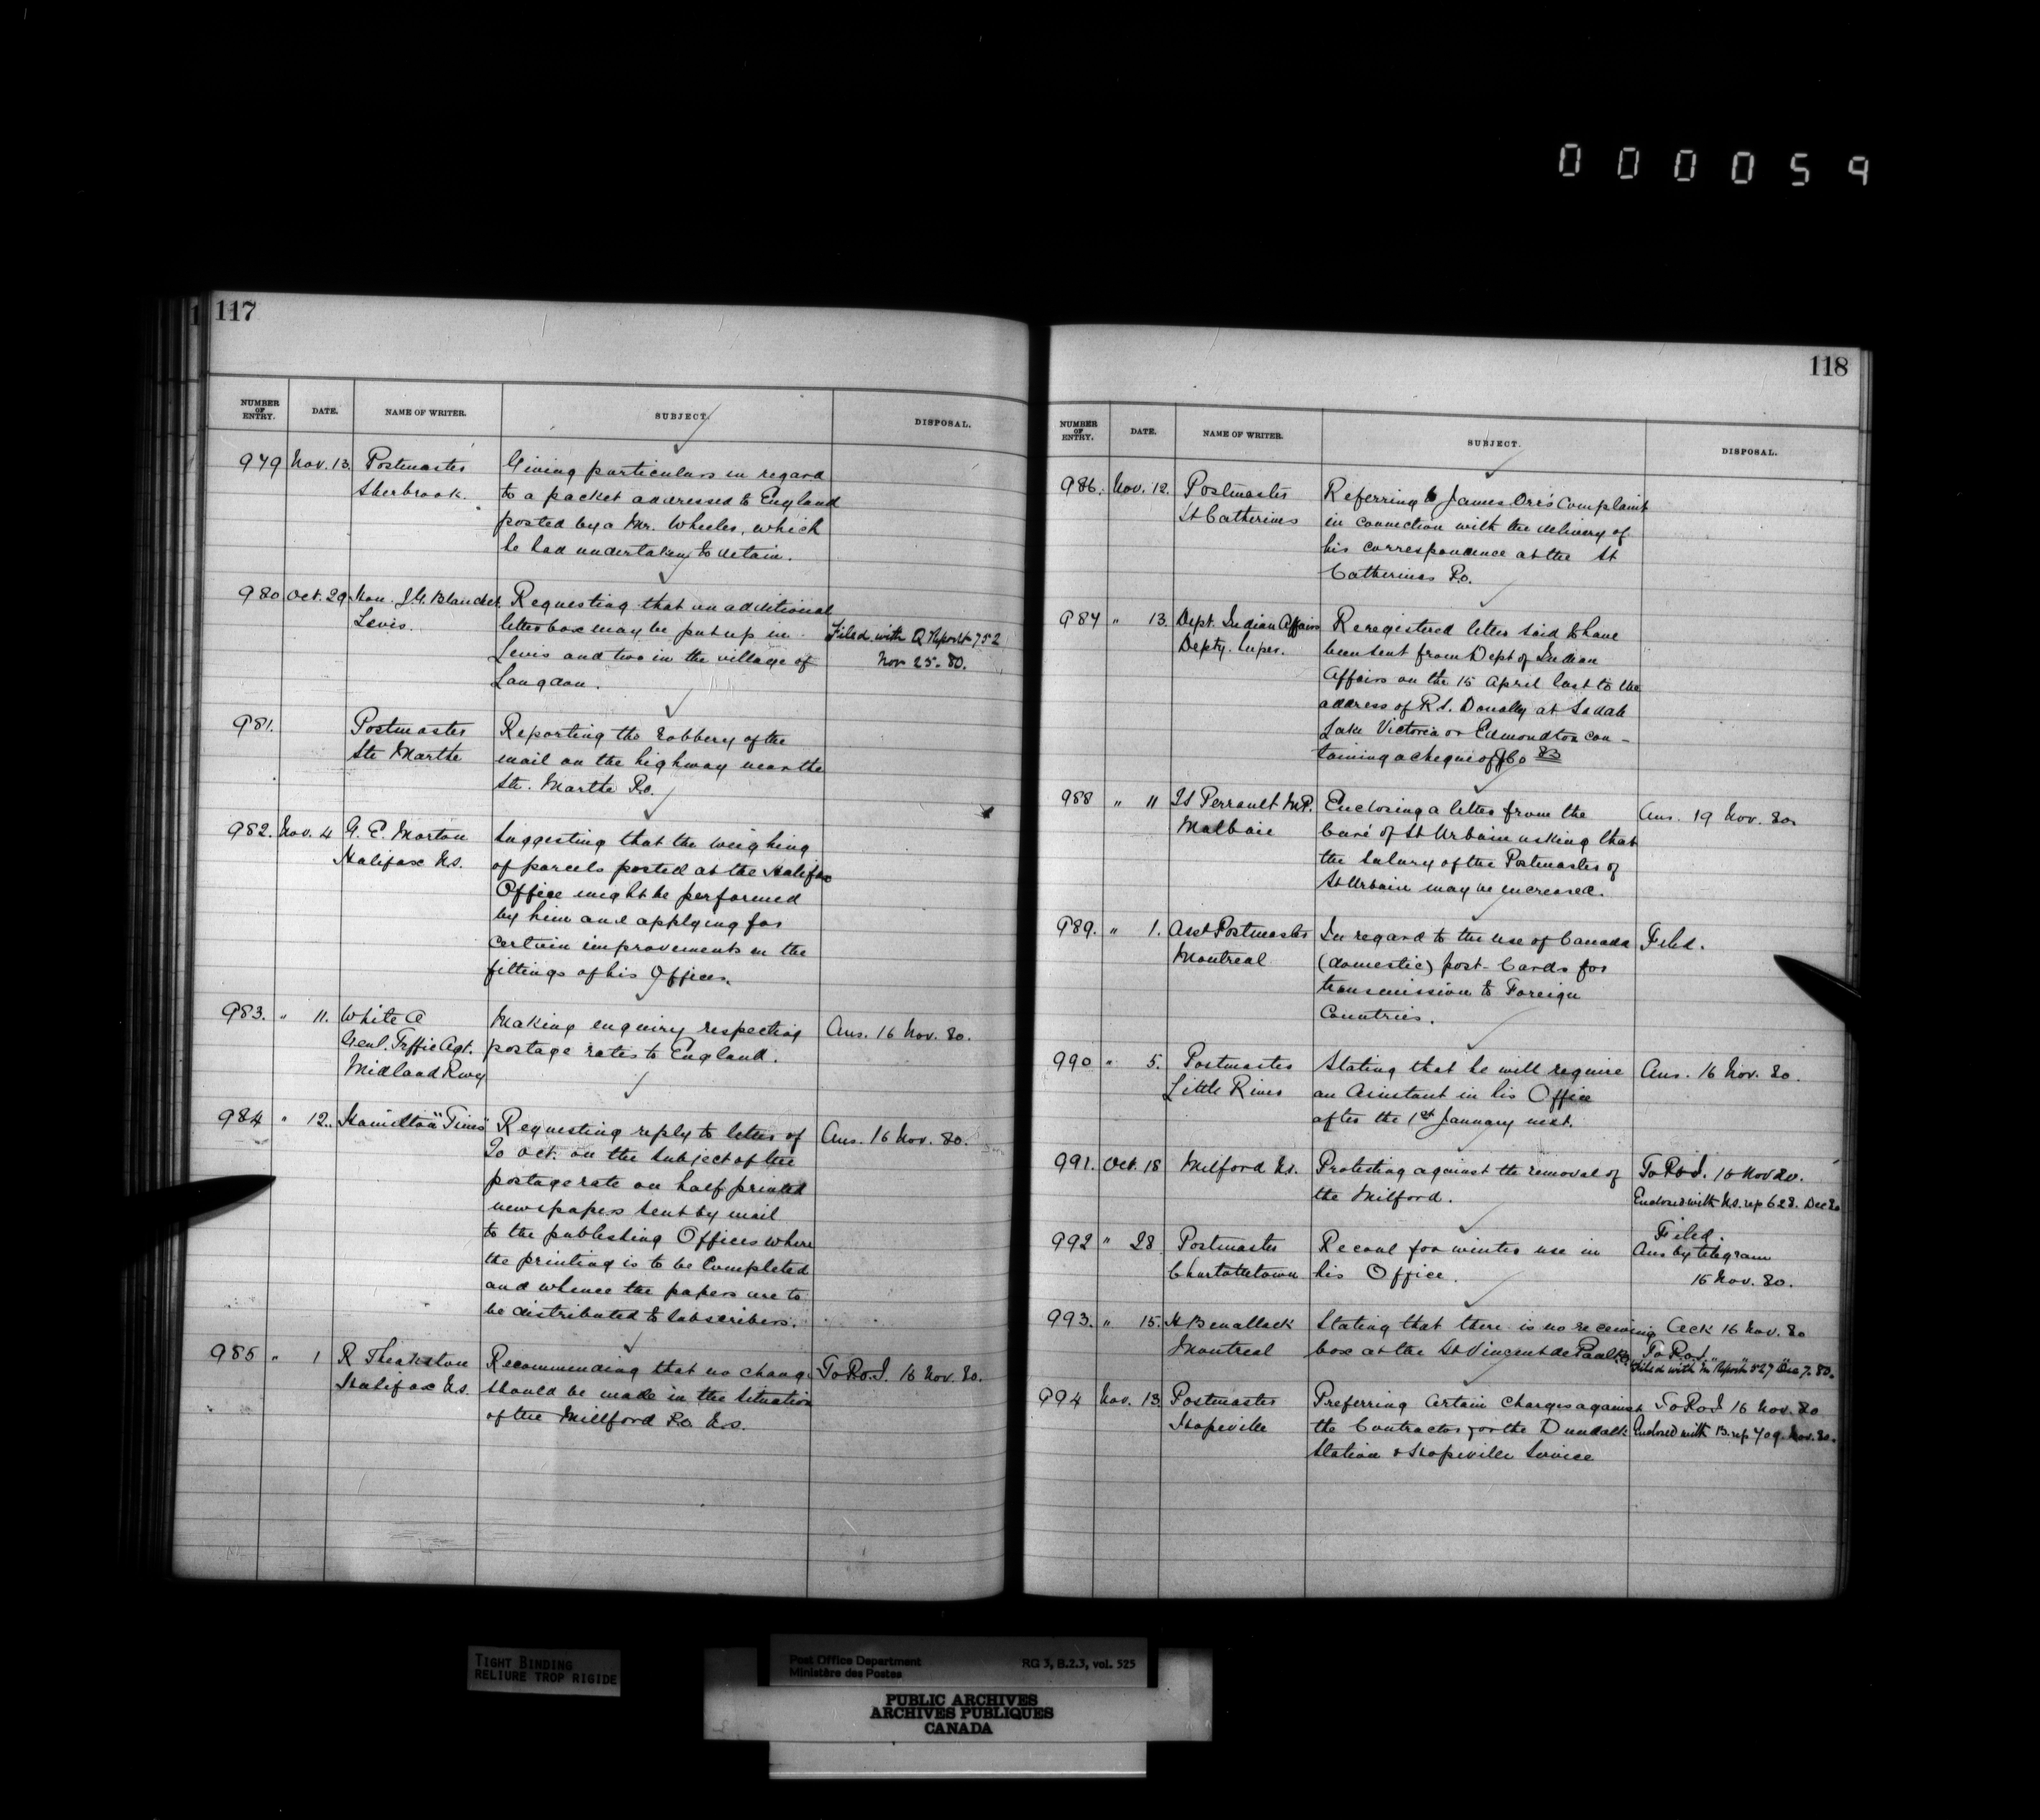 000059
117
NUMBER OF ENTRY. DATE. NAME OF WRITER. SUBJECT. DISPOSAL.
979 Nov. 13. Postmaster Giving particulars in regard
Sherbrook. to a packet addressed to England
posted by a Mr. Wheeler, which
he had undertaken to detain.
980 Oct. 29. Hon. J.G. Blanchet Requesting that an additional
Levis. letter box may be put up in Filed with Q Report 752
Levis and two in the village of Nov 25. 80.
Langdon.
981. Postmaster Reporting the robbery of the
Ste Marthe mail on the highway near the
Ste. Marthe P.O.
982. Nov. 4 G. E. Morton Suggesting that the weighing
Halifax N.S. of parcels posted at the Halifax
Office might be performed
by him and applying for
certain improvements in the
fittings of his Offices.
983. " 11. White A Making enquiry respecting Ans. 16 Nov. 80.
Genl. Trffic Agt. postage rates to England.
Midland Rwy
984 " 12. Hamilton "Times" Requesting reply to letter of Ans. 16 Nov. 80.
20 Oct. on the subject of the
postage rate on half printed
newspapers sent by mail
to the publishing Offices where
the printing is to be Completed
and whence the papers are to
be distributed to Subscribers.
985 " 1 R Theakston Recommending that no change To P.O.I. 16 Nov. 80.
Halifax N.S. should be made in the situation
of the Millford P.O. N.S.
118
NUMBER OF ENTRY. DATE. NAME OF WRITER. SUBJECT. DISPOSAL.
986. Nov. 12. Postmaster Referring to James Orr's Complaint
St Catherines in connection with the delivery of
his correspondence at the St
Catherines P.O.
987 " 13. Dept. Indian Affairs Reregistered letter said to have
Depty. Supr. been sent from Dept of Indian
Affairs on the 15 April last to the
address of R.S. Donally at Saddle
Lake Victoria or Edmondton con-
taining a cheque of $60 83
988 " 11 Perrault M.P. Enclosing a letter from the Ans. 19 Nov. 80.
Malbaie Curé of St Urbain asking that
the salary of the Postmaster of
St Urbain may be increased.
989. " 1. Asst Postmaster In regard to the use of Canada Filed.
Montreal (domestic) post-Cards for
transmission to Foreign
Countries.
990 " 5. Postmaster Stating that he will require Ans. 16 Nov. 80.
Little River an Assistant in his Office
after the 1st January next.
991. Oct. 18 Milford N.S. Protesting against the removal of To P.O.I. 16 Nov 80.
the Milford. Enclosed with N.S. rep 628. Dec 80
992 " 28 Postmaster Re coal for winter use in Filed.
Charlottetown his Office. Ans by telegram
16 Nov. 80.
993. " 15. H Benallack Stating that there is no receiving Ack 16 Nov. 80
Montreal box at the St Vincent de Paul P.O. To P.O.I.
Filed with "M" Report 527 Dec 7. 80.
994 Nov. 13 Postmaster Preferring Certain Charges against To P.O.I 16 Nov. 80
Hopeville the Contractor for the Dundalk Enclosed with B. rep 709. Nov. 80.
Station & Hopeville Service
TIGHT BINDING
RELIURE TROP RIGIDE
Post Office Department RG 3, B.2.3, vol. 525
Ministère des Postes
PUBLIC ARCHIVES
ARCHIVES PUBLIQUES
CANADA